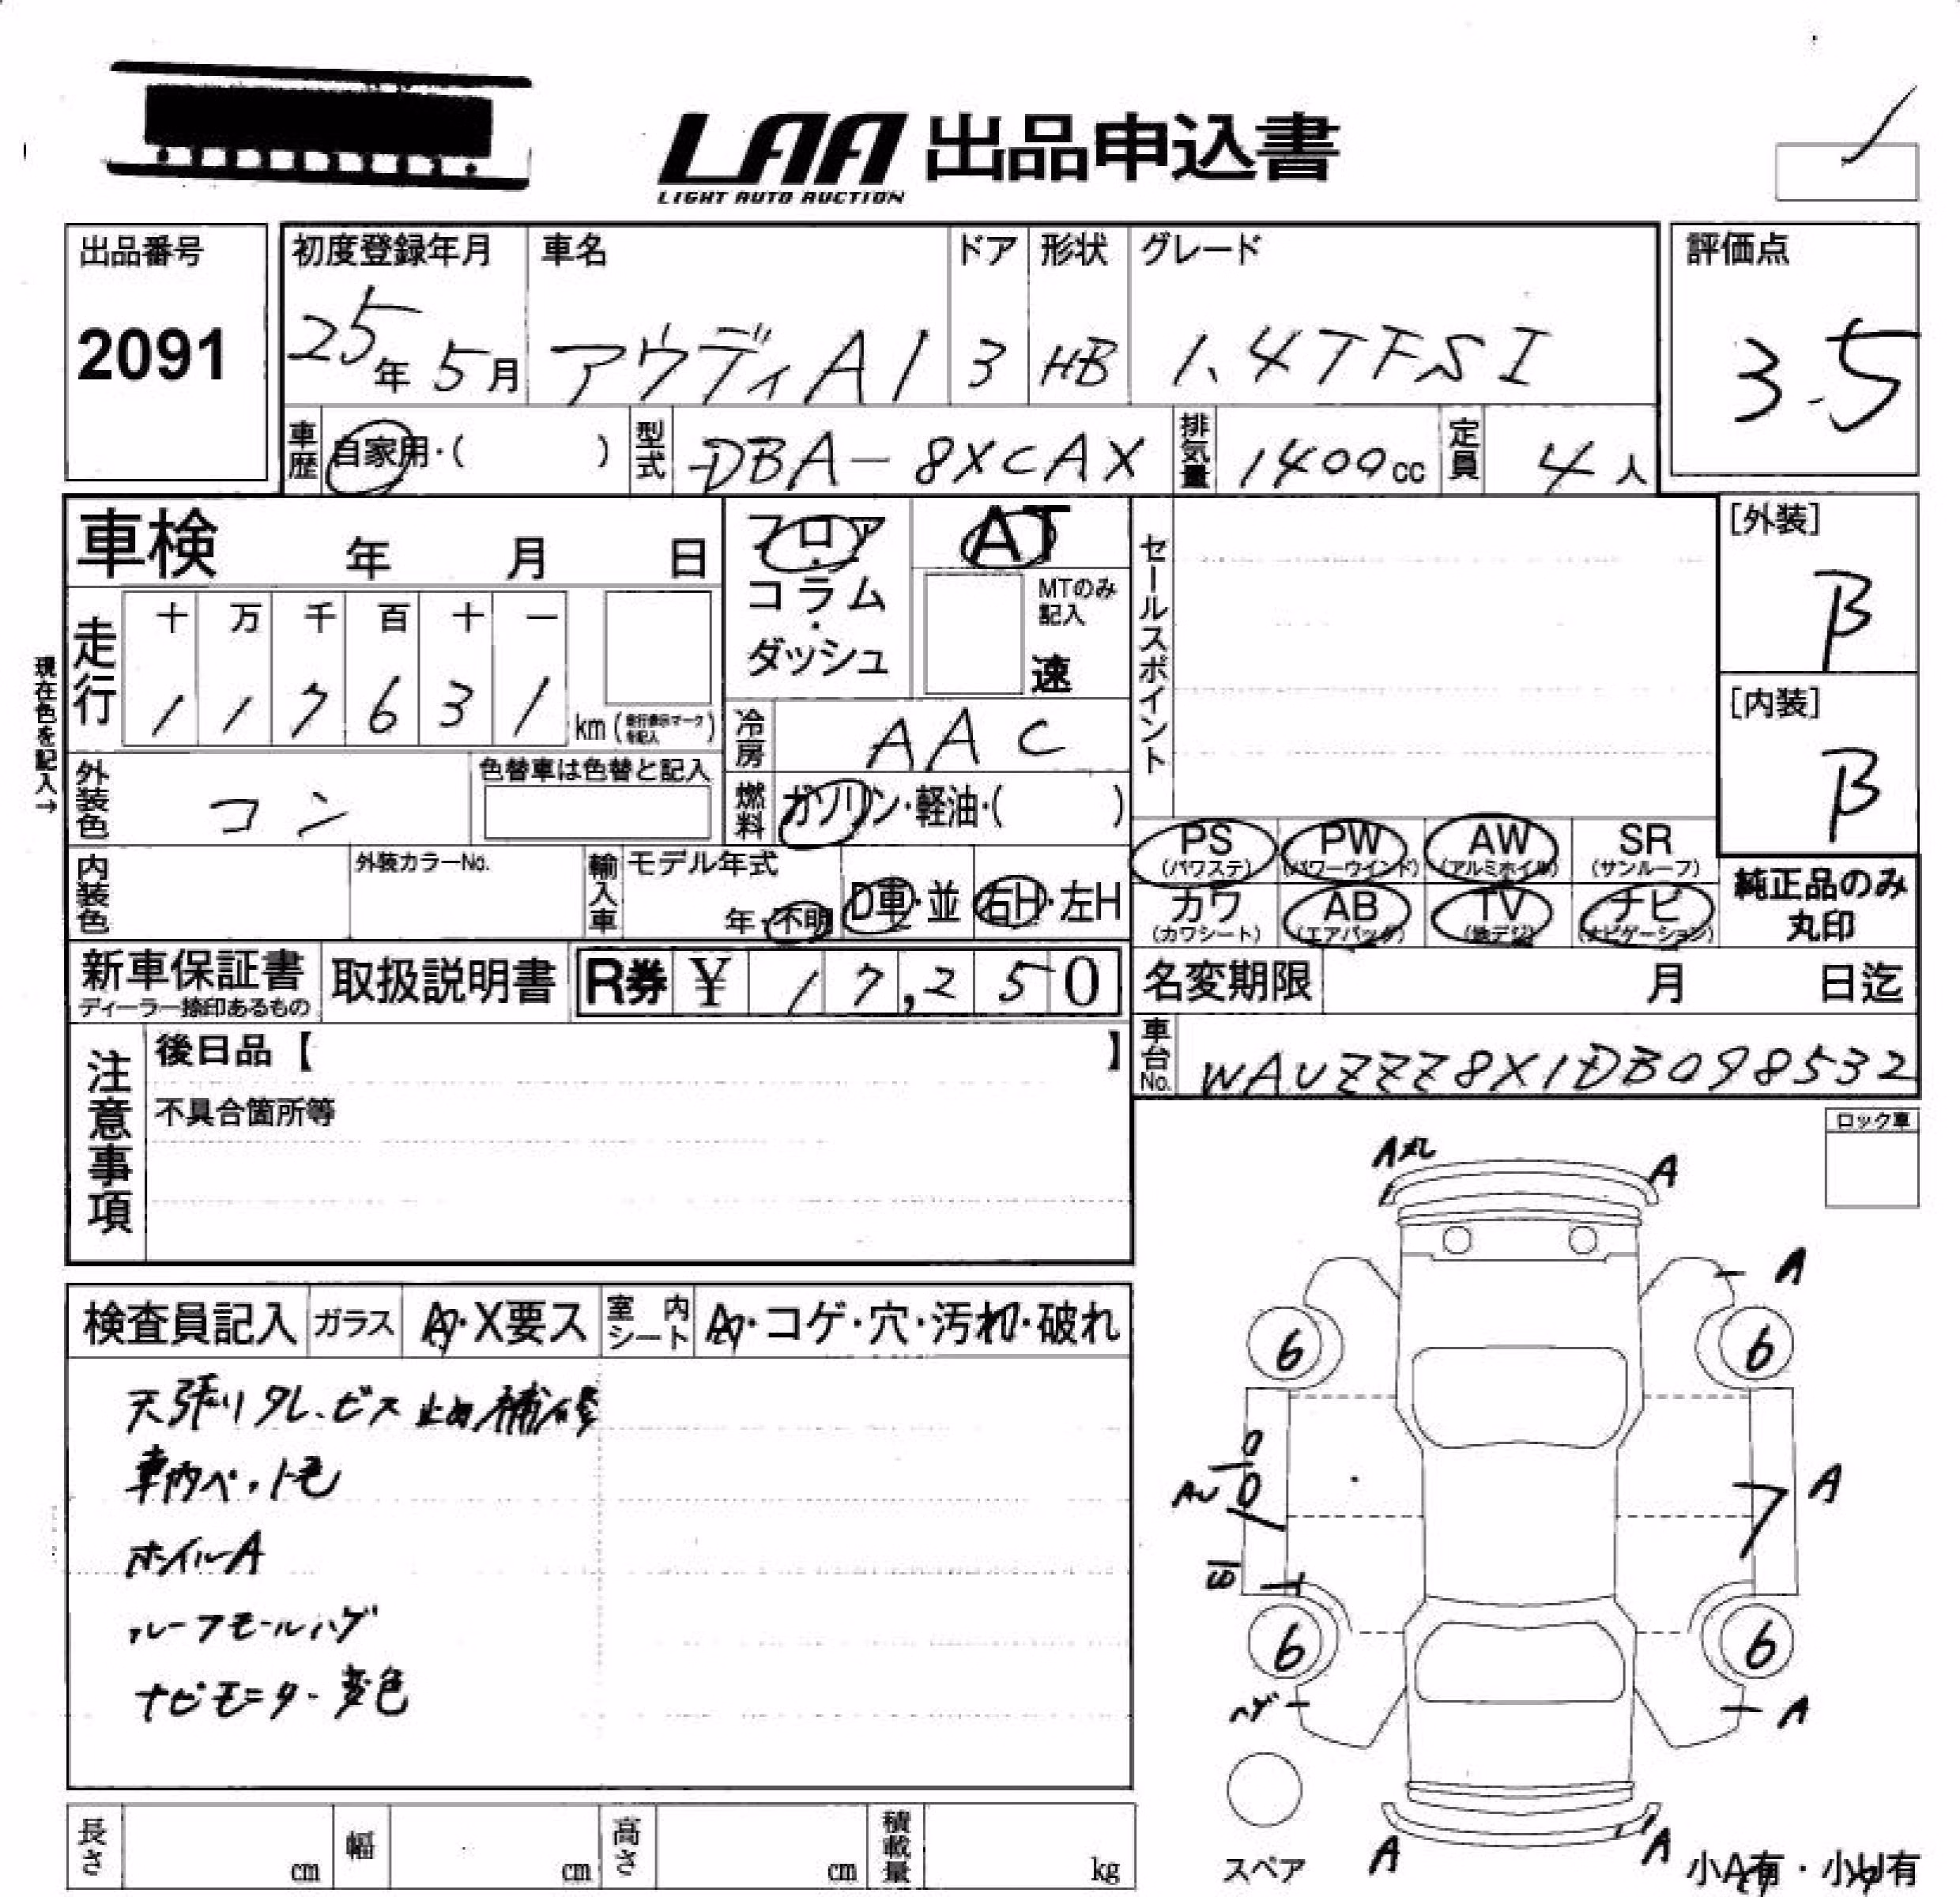 LAA 出品申込書
LIGHT AUTO AUCTION
出品番号
2091
初度登録年月 車名 ドア 形状 グレード
25年 5月 アウディA1 3 HB 1.4TFSI
評価点
3.5
車歴 自家用・( ) 型式 DBA-8XCAX 排気量 1400cc 定員 4人
車検 年 月 日
フロア・コラム・ダッシュ
AT
MTのみ記入
速
セールスポイント
[外装]
B
[内装]
B
現在色を記入→
走行 十 万 千 百 十 一
1 1 7 6 3 1 km (走行表示マークを記入)
冷房 AAC
外装色 コン 色替車は色替と記入
燃料 ガソリン・軽油・( )
PS (パワステ) PW (パワーウインド) AW (アルミホイル) SR (サンルーフ)
カワ (カワシート) AB (エアバッグ) TV (地デジ) ナビ (ナビゲーション)
純正品のみ
丸印
内装色 外装カラーNo. 輸入車 モデル年式 年・不明 D車・並 右H・左H
新車保証書 取扱説明書 R券 ¥ 17,250
ディーラー捺印あるもの
名変期限 月 日迄
車台No. WAUZZZ8X1DB098532
注意事項
後日品【 】
不具合箇所等
ロック車
検査員記入 ガラス A・X要ス 室内シート A・コゲ・穴・汚れ・破れ
天張りタレ、ビス止め補修
車内ペット毛
ホイルA
ルーフモールハゲ
ナビモニター変色
A A
A
6 6
A
AU
A
6 6
ハゲ A
スペア
A A
小A有・小U有
長さ cm 幅 cm 高さ cm 積載量 kg